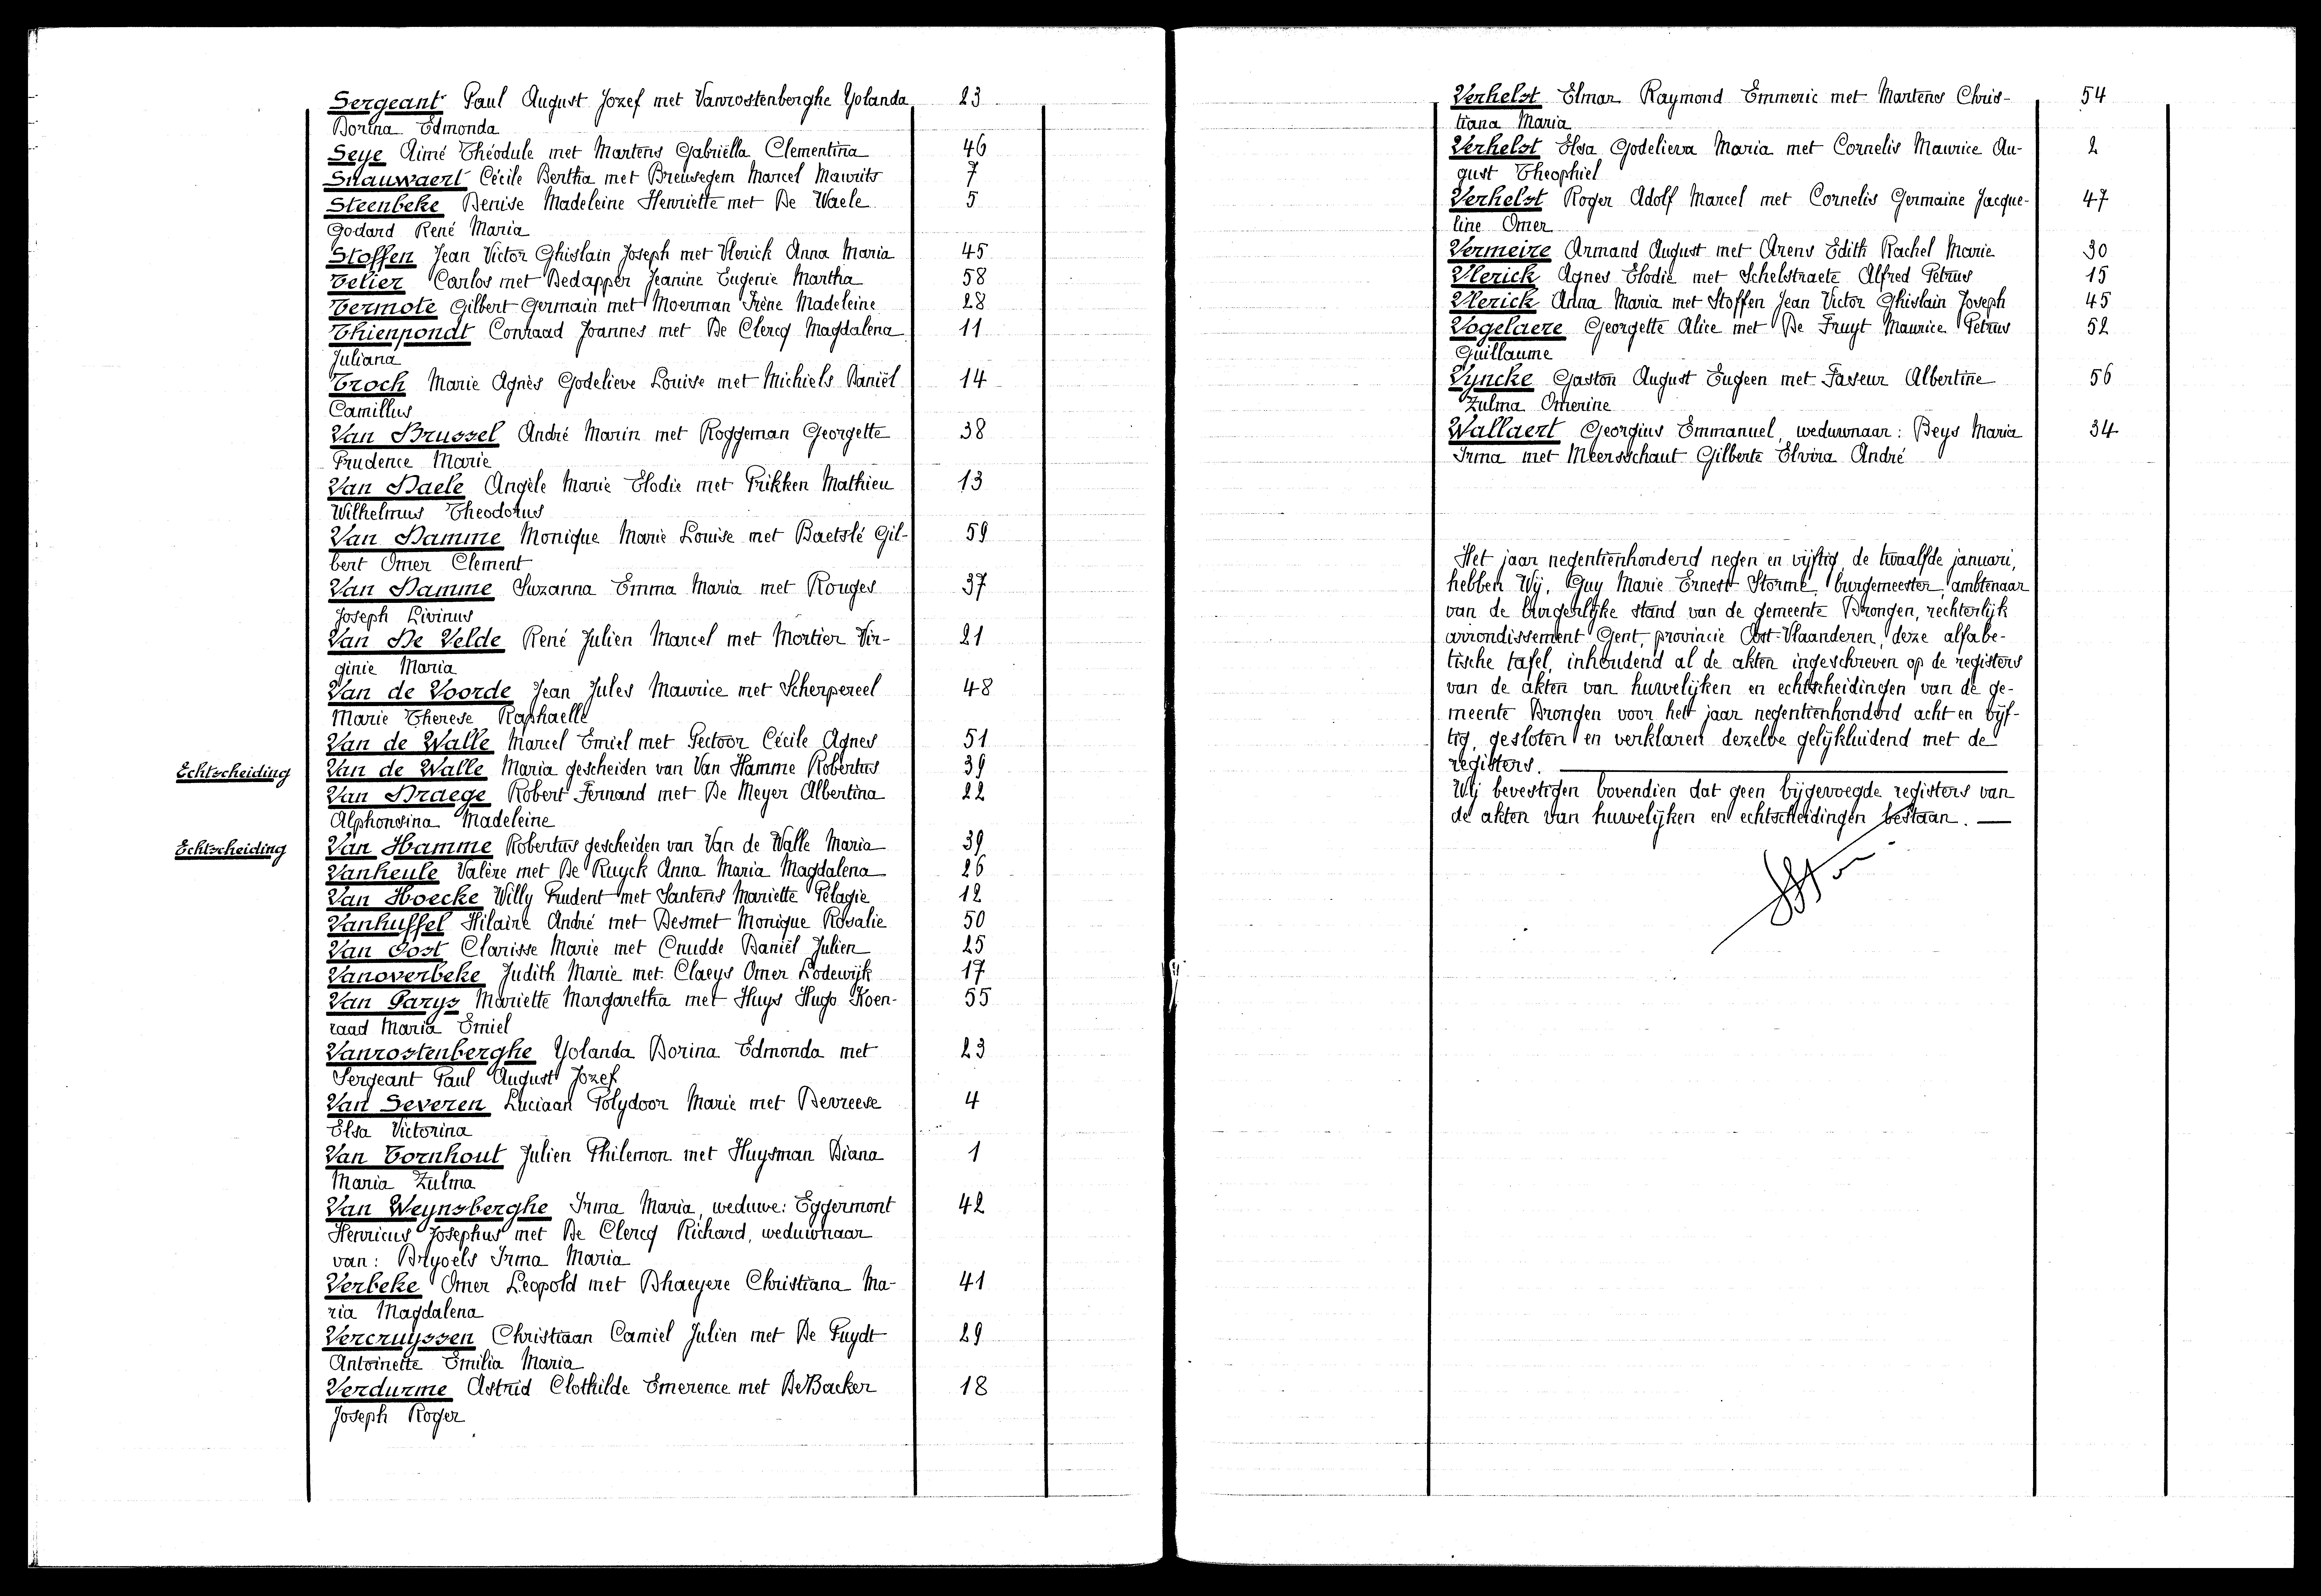 Sergeant Paul August Jozef met Vanrostenberghe Yolanda 23
Dorina Edmonda
Seye Aimé Théodule met Martens Gabriëlla Clementina 46
Snauwaert Cécile Bertha met Breusegem Marcel Maurits 7
Steenbeke Denise Madeleine Henriette met De Waele 5
Godard René Maria
Stoffen Jean Victor Ghislain Joseph met Vlerick Anna Maria 45
Telier Carlos met Dedapper Jeanine Eugenie Martha 58
Termote Gilbert Germain met Moerman Irène Madeleine 28
Thienpondt Conraad Joannes met De Clercq Magdalena 11
Juliana
Troch Marie Agnès Godelieve Louise met Michiels Daniël 14
Camillus
Van Brussel André Marin met Roggeman Georgette 38
Prudence Marie
Van Daele Angèle Marie Elodie met Frikken Mathieu 13
Wilhelmus Theodorus
Van Damme Monique Marie Louise met Baetslé Gil- 59
bert Omer Clement
Van Damme Suzanna Emma Maria met Rouges 37
Joseph Livinus
Van De Velde René Julien Marcel met Mortier Vir- 21
ginie Maria
Van de Voorde Jean Jules Maurice met Scherpereel 48
Marie Therese Raphaelle
Van de Walle Marcel Emiel met Pectoor Cécile Agnes 51
Echtscheiding Van de Walle Maria gescheiden van Van Hamme Robertus 39
Van Draege Robert Fernand met De Meyer Albertina 22
Alphonsina Madeleine
Echtscheiding Van Hamme Robertus gescheiden van Van de Walle Maria 39
Vanheule Valère met De Ruyck Anna Maria Magdalena 26
Van Hoecke Willy Prudent met Santens Mariette Pelagie 12
Vanhuffel Hilaire André met Desmet Monique Rosalie 50
Van Oost Clarisse Marie met Cnudde Daniël Julien 25
Vanoverbeke Judith Marie met Claeys Omer Lodewijk 17
Van Parys Mariette Margaretha met Huys Hugo Koen- 55
raad Maria Emiel
Vanrostenberghe Yolanda Dorina Edmonda met 23
Sergeant Paul August Jozef
Van Severen Luciaan Polydoor Marie met Devreese 4
Elsa Victorina
Van Tornhout Julien Philemon met Huysman Diana 1
Maria Zulma
Van Weynsberghe Irma Maria, weduwe: Eggermont 42
Henricus Josephus met De Clercq Richard, weduwnaar
van: Bryoels Irma Maria
Verbeke Omer Leopold met Dhaeyere Christiana Ma- 41
ria Magdalena
Vercruyssen Christiaan Camiel Julien met De Puydt 29
Antoinette Emilia Maria
Verdurme Astrid Clothilde Emerence met De Backer 18
Joseph Roger
Verhelst Elmar Raymond Emmeric met Martens Chris- 54
tiana Maria
Verhelst Elsa Godelieva Maria met Cornelis Maurice Au- 2
gust Theophiel
Verhelst Roger Adolf Marcel met Cornelis Germaine Jacque- 47
line Omer
Vermeire Armand August met Arens Edith Rachel Marie 30
Vlerick Agnes Elodie met Schelstraete Alfred Petrus 15
Vlerick Anna Maria met Stoffen Jean Victor Ghislain Joseph 45
Vogelaere Georgette Alice met De Fruyt Maurice Petrus 52
Guillaume
Vyncke Gaston August Eugeen met Faseur Albertine 56
Zulma Omerine
Wallaert Georgius Emmanuel, weduwnaar: Beys Maria 34
Irma met Meersschaut Gilberte Elvira André
Het jaar negentienhonderd negen en vijftig, de twaalfde januari,
hebben Wij, Guy Marie Ernest Storme, burgemeester, ambtenaar
van de burgerlijke stand van de gemeente Drongen, rechterlijk
arrondissement Gent, provincie Oost-Vlaanderen, deze alfabe-
tische tafel, inhoudend al de akten ingeschreven op de registers
van de akten van huwelijken en echtscheidingen van de ge-
meente Drongen voor het jaar negentienhonderd acht en vijf-
tig, gesloten en verklaren dezelve gelijkluidend met de
registers.
Wij bevestigen bovendien dat geen bijgevoegde registers van
de akten van huwelijken en echtscheidingen bestaan.